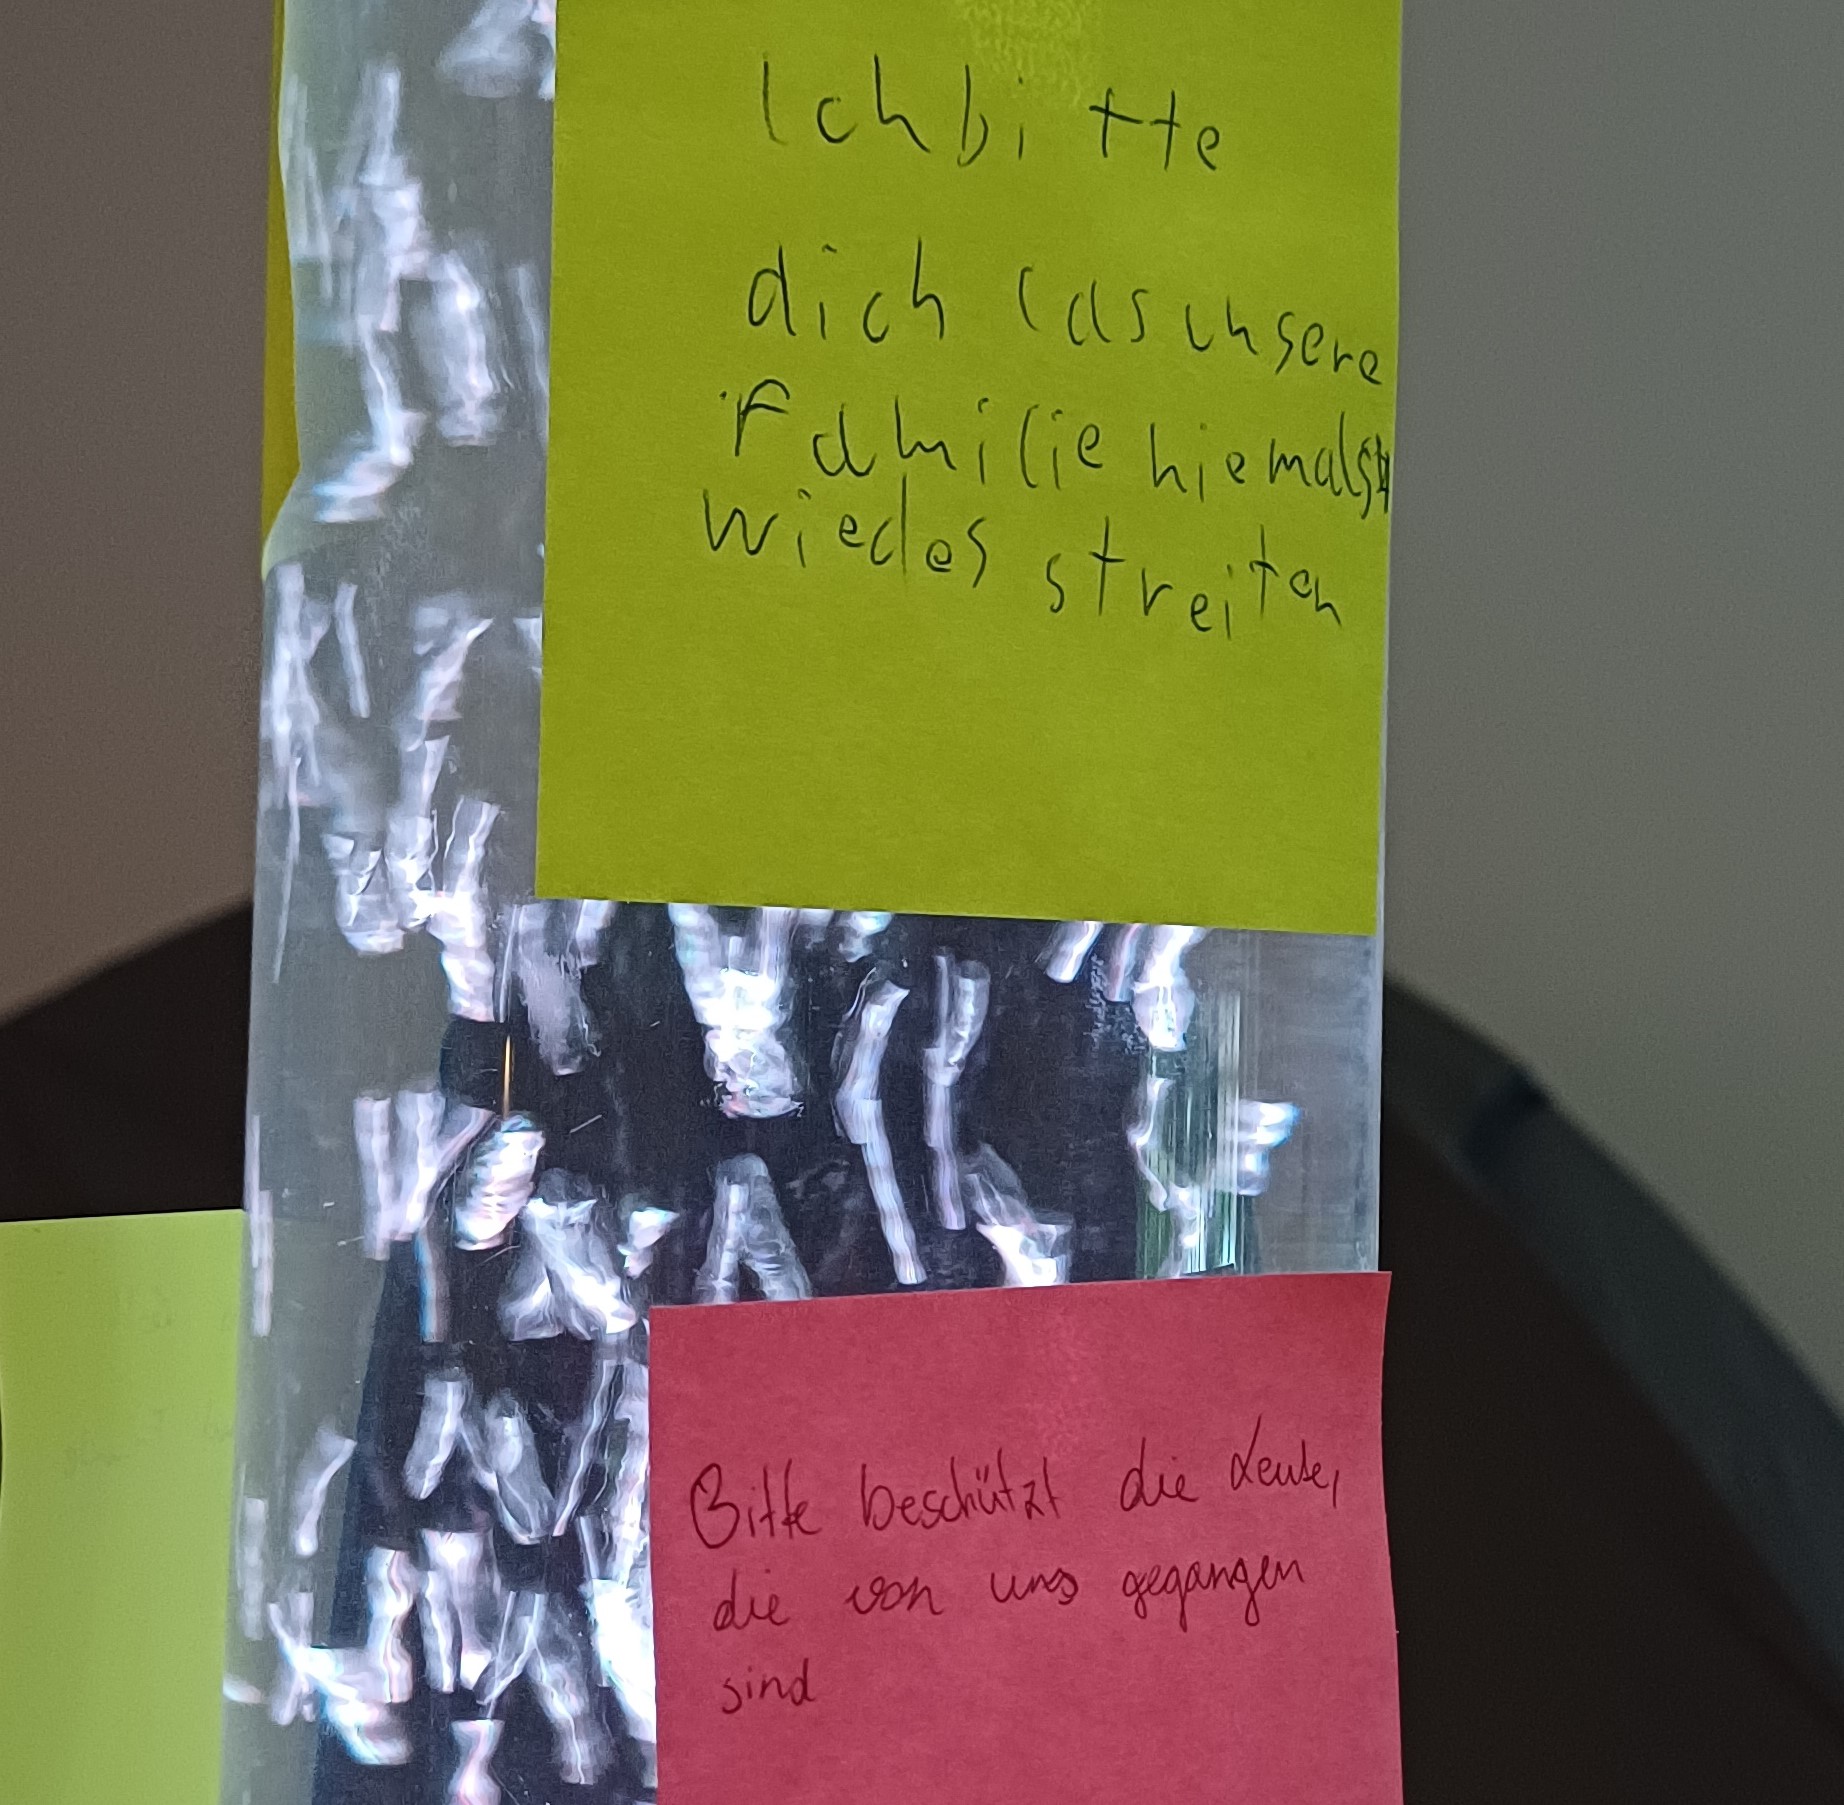 Ich bitte
dich las unsere
Familie niemals
wieder streiten
Bitte beschützt die Leute,
die von uns gegangen
sind